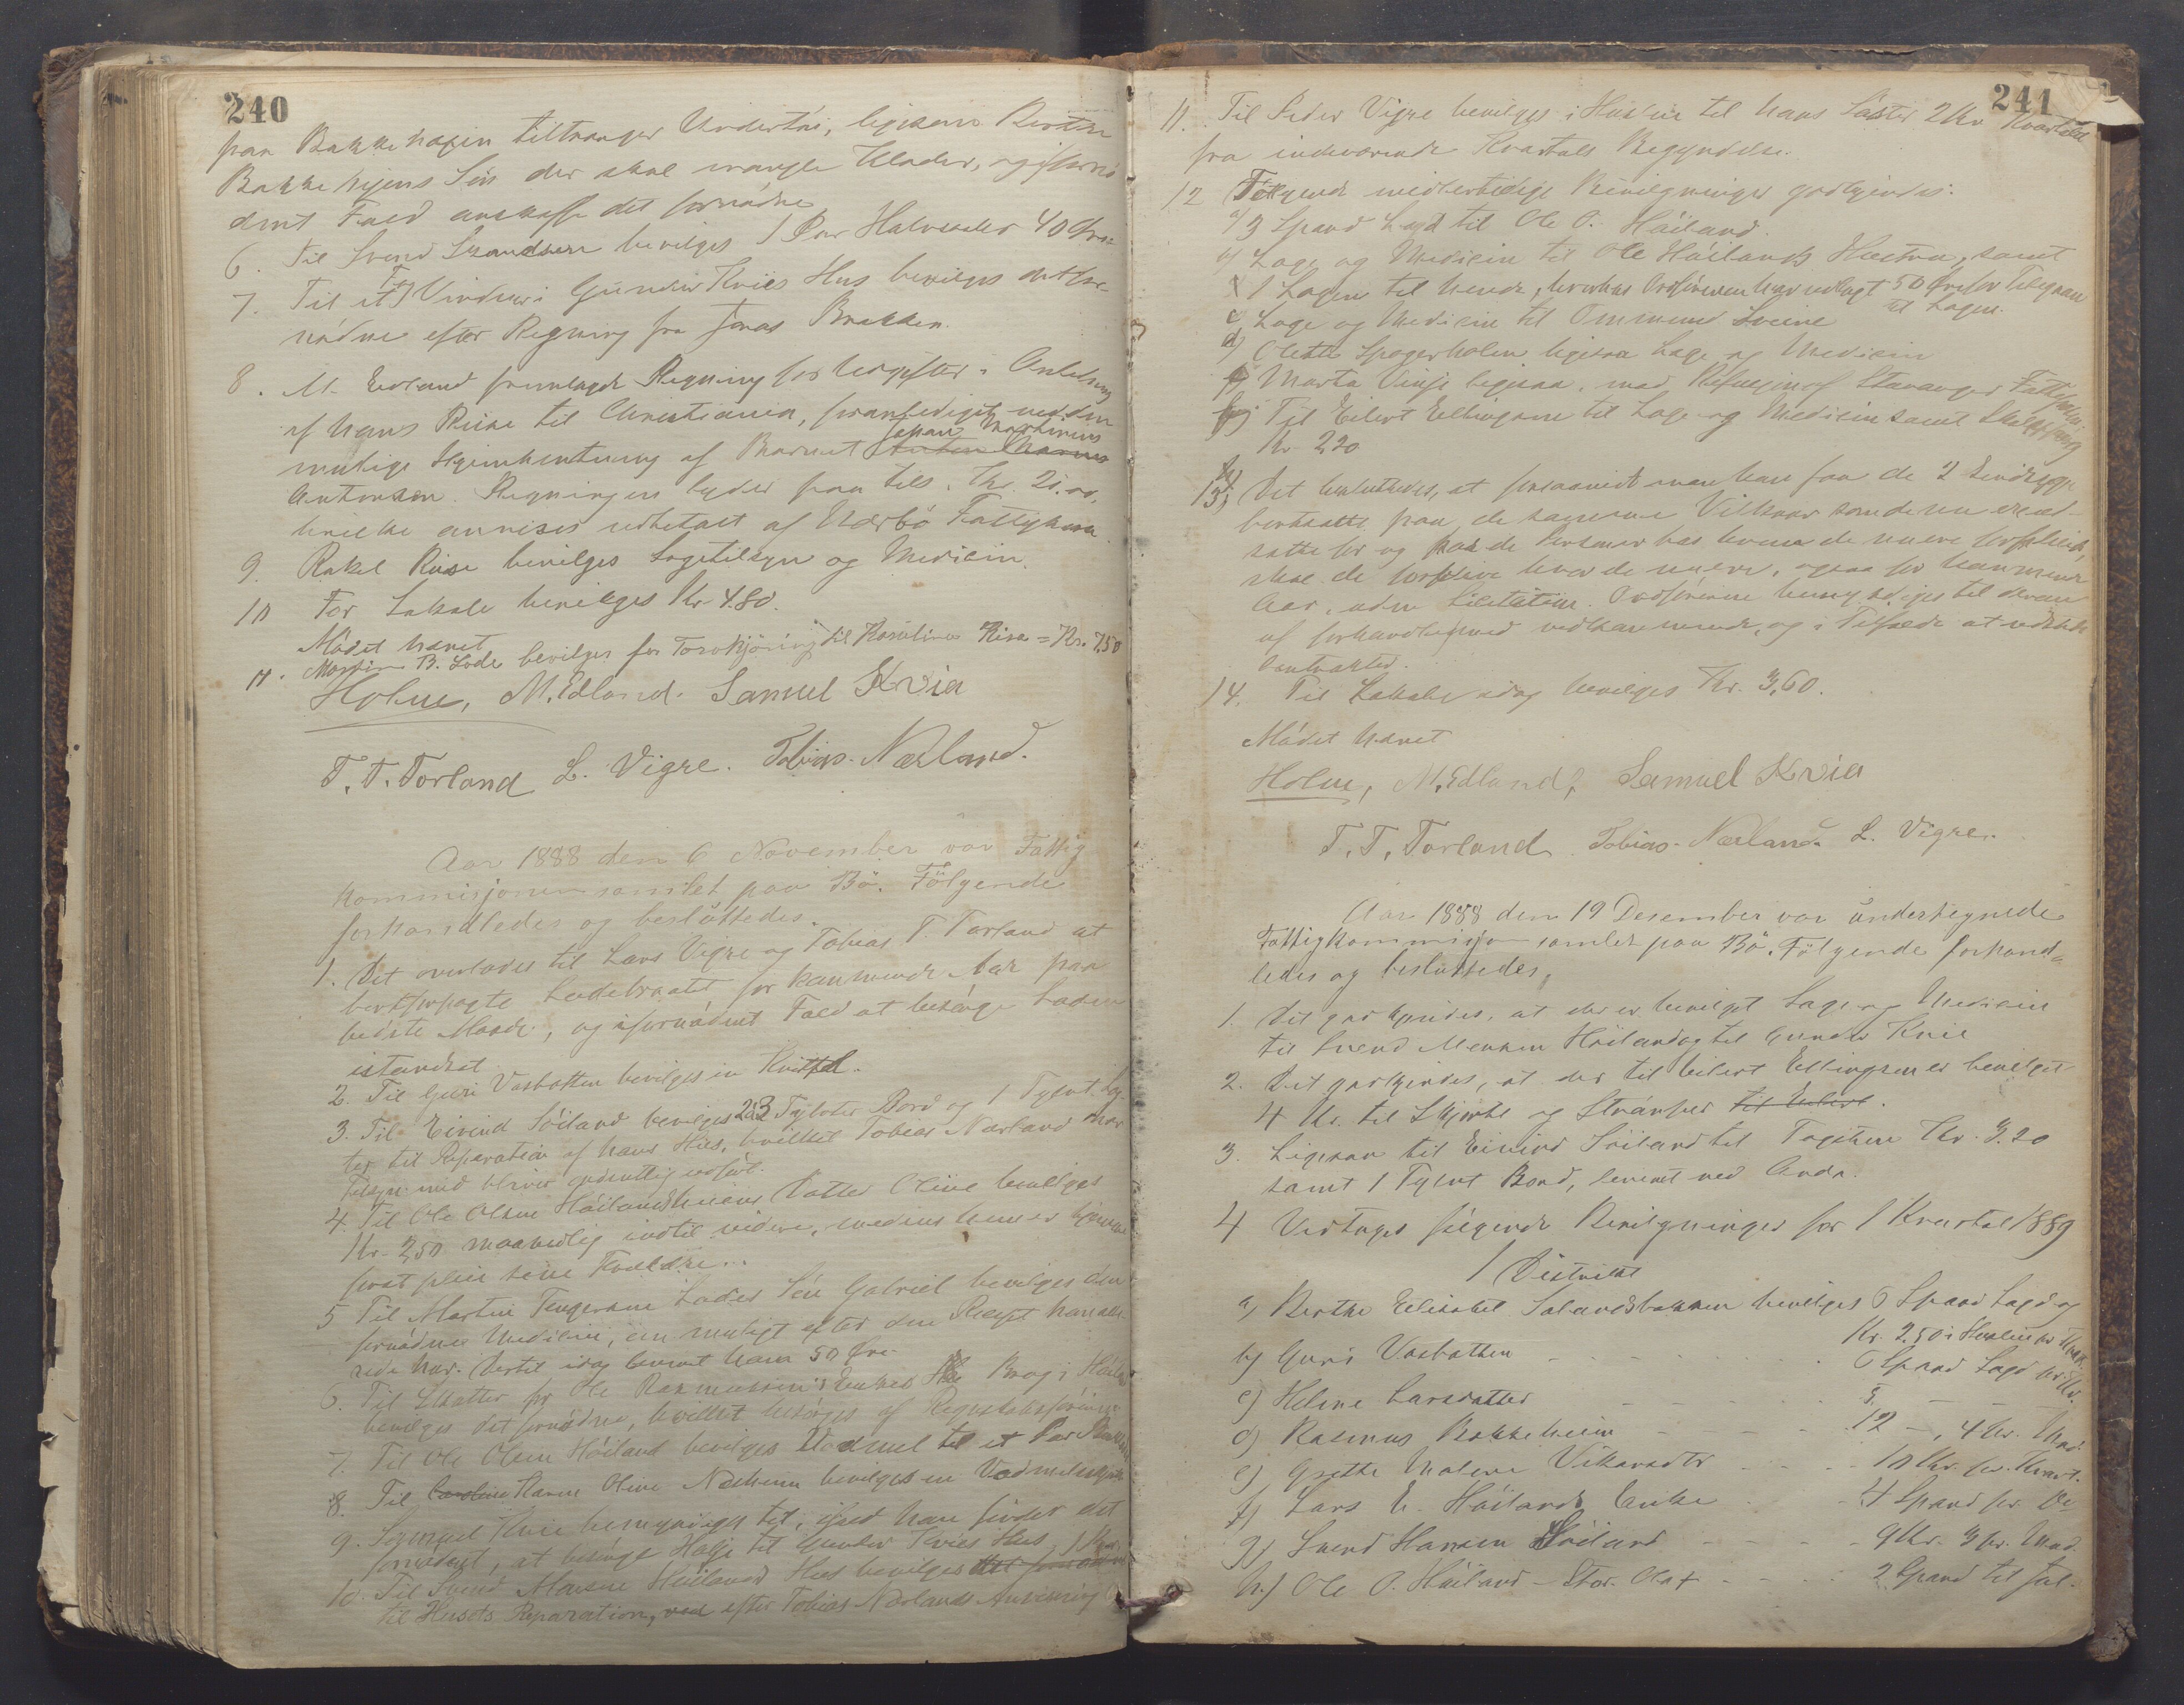 240
paa Bakkehagen tiltrænger Undertøi, ligesom Berthe
Bakkehagens Søn der skal mangle Klæder, og i fornø
dent Fald anskaffe det fornødne
6. Til Svend bevilges 1 Par Halvsaaler 40 Øre
7. Til et Vindu i Gunder Kvies Hus bevilges det for-
nødne efter Regning fra Jonas Brakken.
8. M. Edland fremlagde Regning for Udgifter i Anledning
af hans Reise til Christiania, foranlediget ved den
mulige Hjemhentning af Barnet Johan Martinius
Antonsen. Regningen lyder paa tils. Kr. 21.00.
hvilke anvises udbetalt af Nærbø Fattigkasse
9. Rakel Risa bevilges Lægetilsyn og Medisin.
10 For Lokale bevilges Kr 4.80.
Mødet hævet
11. Martin B. Lode bevilges for Torvkjøring til Rosine Risa = Kr. 7,50
Holm, M. Edland. Samuel Kvia
T. T. Torland L. Vigre. Tobias Nærland.
Aar 1888 den 6 November var Fattig
kommisjonen samlet paa Bø. Følgende
forhandledes og besluttedes.
1. Det overlades til Lars Vigre og Tobias T. Torland at
bortforpagte Lodebraatet for kommende Aar paa
bedste Maade, og i fornødent Fald at besørge Laden
istandsat
2. Til Guri Vasbotten bevilges en Kvittel.
3. Til Eivind Söiland bevilges 2 à 3 Tylvter Bord og 1 Tylvt Leg-
ter til Reparation af hans Hus, hvilket Tobias Nærland har
Tilsyn med bliver ordentlig udført.
4. Til Ole Olsen Høilands Datter Oline bevilges
Kr. 2,50 maanedlig indtil videre, medens hun er hjemme
for at pleie sine Forældre.
5 Til Martin Tengesens Lodes Søn Gabriel bevilges den
fornødne Medisin, om muligt efter den Resept han alle
rede har. Dertil idag leveret ham 50 Øre.
6. Til Skatter for Ole Rasmussens Enkes Brug i Høiland
bevilges det fornødne, hvilket besørges af Regnskabsføreren
7. Til Ole Olsen Høiland bevilges Vadmel til et Par Buxer
8. Til Karen Oline Nedrem bevilges en Vadmelsskjørt
9. Samuel Kvie bemyndiges til, ifald han finder det
fornødent, at besørge Hjelp til Gunder Kvies Hus,
10. Til Svend Monsen Høilands Hus bevilges det fornødne
til Husets Reparation, ved efter Tobias Nærlands Anvisning
241
11. Til Peder Vigre bevilges i Husleie til hans Søster 2 Kr Kvartalet
fra indeværende Kvartals Begyndelse.
12 Følgende midlertidige Bevilgninger godkjendes:
a) 3 Spand Sagd til Ole O. Høiland.
b) Læge og Medisin til Ole Høilands Hustru, samt
1 Lagen til hende, hvorhos Ordføreren har udlagt 50 Øre for Telegram
til Lægen.
c) Læge og Medisin til Ommund Sveine
d) Olette Spogerholen ligesaa Læge og Medisin
e) Marta Vinje ligesaa, med Refusjon af Stavanger Fattigkasse
f) Til Eilert Ellingsen til Læge og Medisin samt
Kr 2.20
13. Det besluttedes, at forsaavidt man kan faa de 2 Sindssyge
bortsatte paa de samme Vilkaar som de nu er ud-
satte for og hos de Personer hos hvem de nu er forpleiet,
skal de forblive hvor de nu er, ogsaa for kommende
Aar, uden Licitation. Ordføreren bemyndiges til derom
at forhandle med vedkommende, og i Tilfælde at udstede
Contrakter.
14. Til Lokale idag bevilges Kr. 3,60.
Mødet hævet
Holm, M. Edland, Samuel Kvia
T. T. Torland Tobias Nærland L. Vigre.
Aar 1888 den 19 Desember var undertegnede
Fattigkommisjon samlet paa Bø. Følgende forhand-
ledes og besluttedes,
1. Det godkjendes, at der er bevilget Læge og Medisin
til Svend Monsen Høiland og til Gunder Kvie
2. Det godkjendes, at der til Eilert Ellingsen er bevilget
4 Kr. til Skjorte og Strømper til Eilert.
3. Ligesaa til Eivind Söiland til Tagsten Kr. 3.20
samt 1 Tylvt Bord, leveret ved Anda.
4 Vedtoges følgende Bevilgninger for 1 Kvartal 1889
1 Distrikt
a) Berthe Elisabet Salandsbakken bevilges 6 Spand Sagd og
Kr. 2.50 i Husleie pr Kvart.
b) Guri Vasbotten - - - - - 6 Spand Sagd pr. Kv.
c) Helene Larsdatter - - - - - 5 - - -
d) Rasmus Bakkeheim - - - - 12 -, 4 Kr. Mnd.
e) Grethe Malene Vikarsdtr - - - 10 Kr. pr. Kvart.
f) Lars E. Høilands Enke - - 4 Spand pr. do
g) Svend Hansen Høiland - - - - 9 Kr. 3 pr. Mnd.
h) Ole O. Høiland - Stor-Olas - - - 2 Spand til Jul.